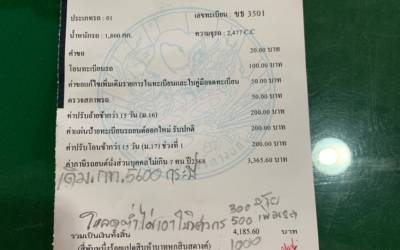 ประเภทรถ : 01 เลขทะเบียน : ขธ 3501
น้ำหนักรถ : 1,800 กก. ความจุรถ : 2,477 C.C
ค่าขอ 20.00 บาท
โอนทะเบียนรถ 100.00 บาท
ค่าขอแก้ไขเพิ่มเติมรายการในทะเบียนและในคู่มือจดทะเบียน 50.00 บาท
ตรวจสภาพรถ 50.00 บาท
ค่าปรับย้ายช้ากว่า 15 วัน (ม.16) 200.00 บาท
ค่าแผ่นป้ายทะเบียนรถยนต์ออกใหม่ รับปกติ 200.00 บาท
ค่าปรับโอนช้ากว่า 15 วัน (ม.17) ช่วงที่ 1 200.00 บาท
ค่าภาษีรถยนต์นั่งส่วนบุคคลไม่เกิน 7 คน ปี2568 3,365.60 บาท
5600
300
500
รวมเป็นเงินทั้งสิ้น 4,185.60 บาท
(สี่พันหนึ่งร้อยแปดสิบห้าบาทหกสิบสตางค์) 1000